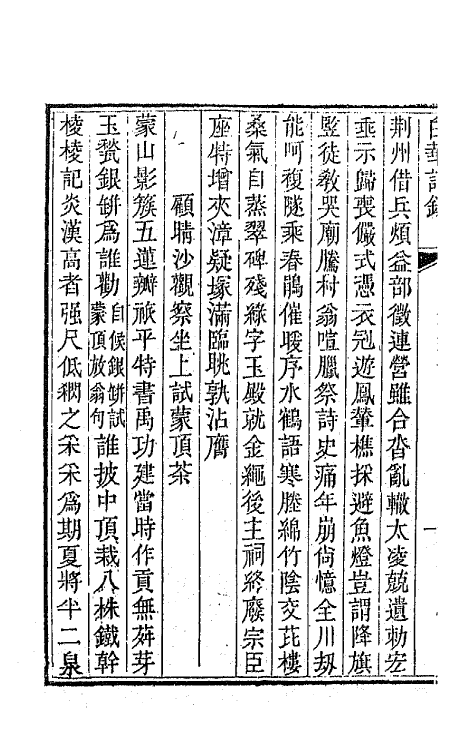 白華詩鈔
荆州借兵煩益部徵連營雖合沓亂轍太凌兢遺勅宏
垂示歸喪儼式憑衣冠遊鳳輦樵採避魚燈豈謂降旗
豎徒教哭廟騰村翁喧臘祭詩史痛年崩尙憶全川刼
能呵複隧乘春鵑催暖序水鶴語寒塍綿竹陰交茈樓
桑氣自蒸翠碑殘綠字玉殿就金繩後主祠終廢宗臣
座特增夾漳疑塚滿臨眺孰沾膺
顧晴沙觀察坐上試蒙頂茶
蒙山影簇五蓮瓣旅平特書禹功建當時作貢無莽芽
玉甃銀缾爲誰勸自候銀缾試蒙頂放翁句誰披中頂栽八株鐵幹
棱棱記炎漢高者强尺低稠之采采爲期夏將半二泉